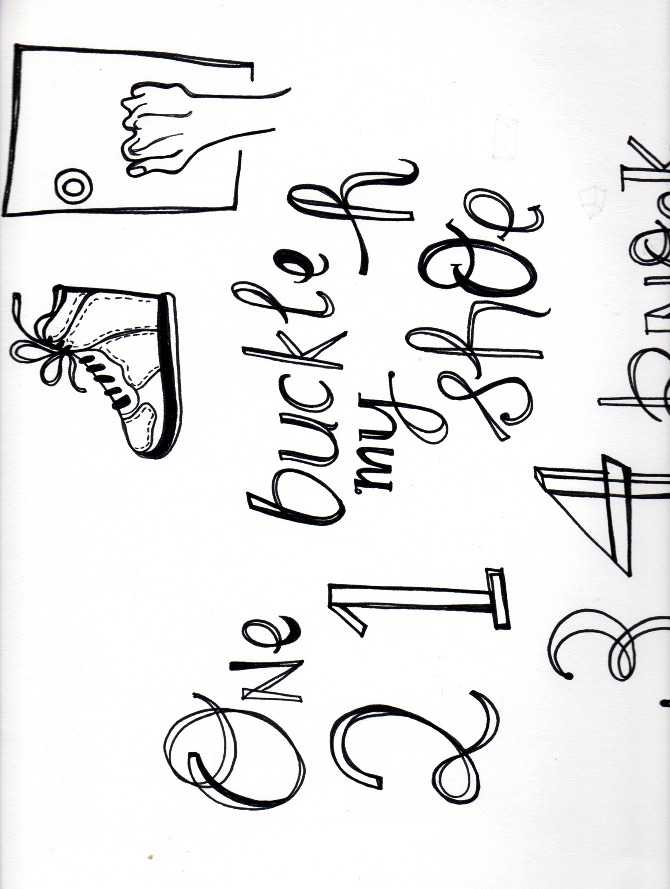 One buckle h
2 1 my
shoe
3 4